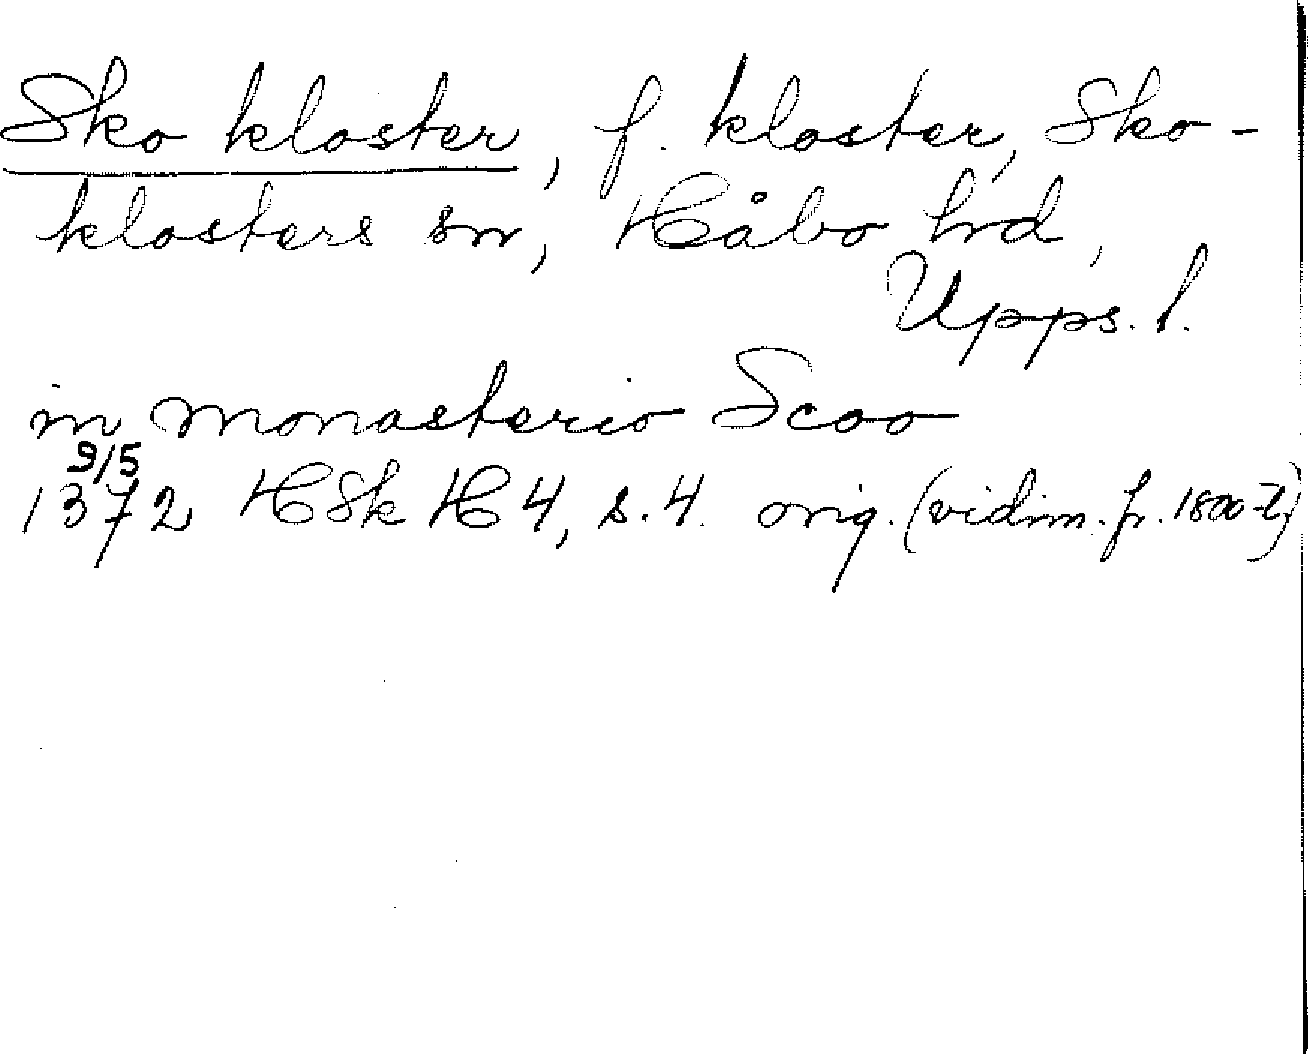 Sko kloster, f. kloster, Sko-
klosters sn, Håbo hd,
Upps. l.
in monasterio Scoo
9/5
1372 HSk H 4, s. 4. orig. (vidim. fr. 1800-t)